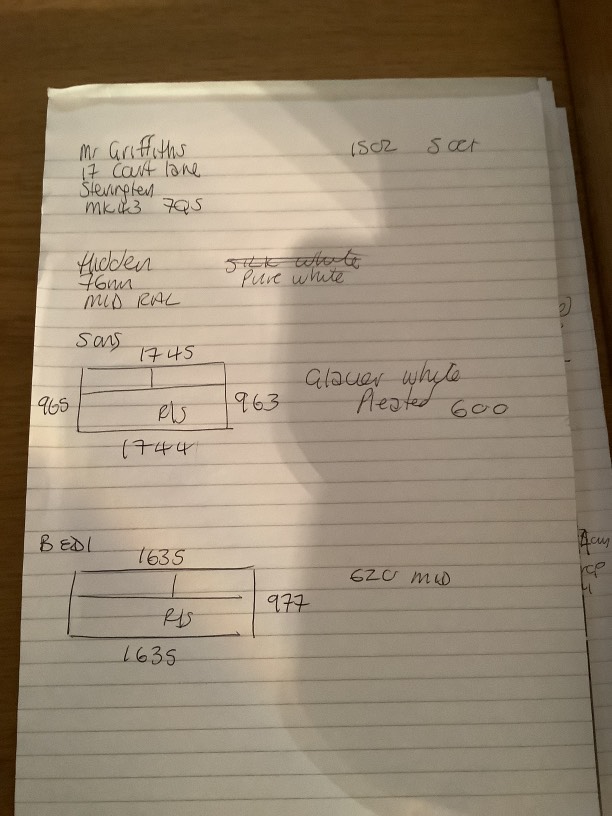 Mr Griffiths
17 Court lane
Stevington
MK43 7QS
1502 5 oct
Hidden
76mm
MID RAL
Silk white
Pure white
Sons
1745
965
R/S
963
1744
Glacier white
Pleated 600
BED1
1635
R/S
977
1635
620 MID